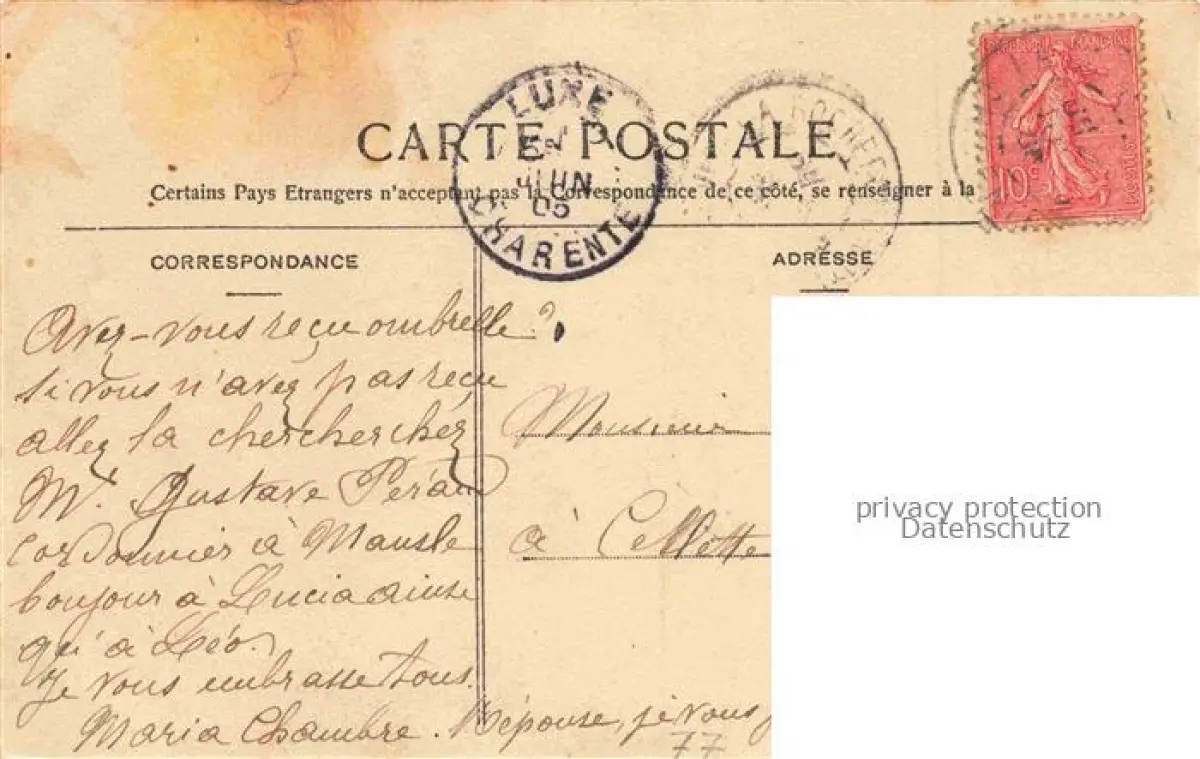 LUXE
JUIN
05
CHARENTE
REPUBLIQUE FRANÇAISE
10c
POSTES
CARTE POSTALE
Certains Pays Etrangers n'acceptent pas la Correspondance de ce côté, se renseigner à la
CORRESPONDANCE
ADRESSE
Avez-vous reçu ombrelle?
Si vous n'avez pas reçu
allez la chercher chez
M. Gustave
cordonnier à Mansle
bonjour à Lucia ainse
qu'à Léo.
Je vous embrasse tous.
Maria Chambre. Réponse, je vous
77
Monsieur
à Cellette
privacy protection
Datenschutz